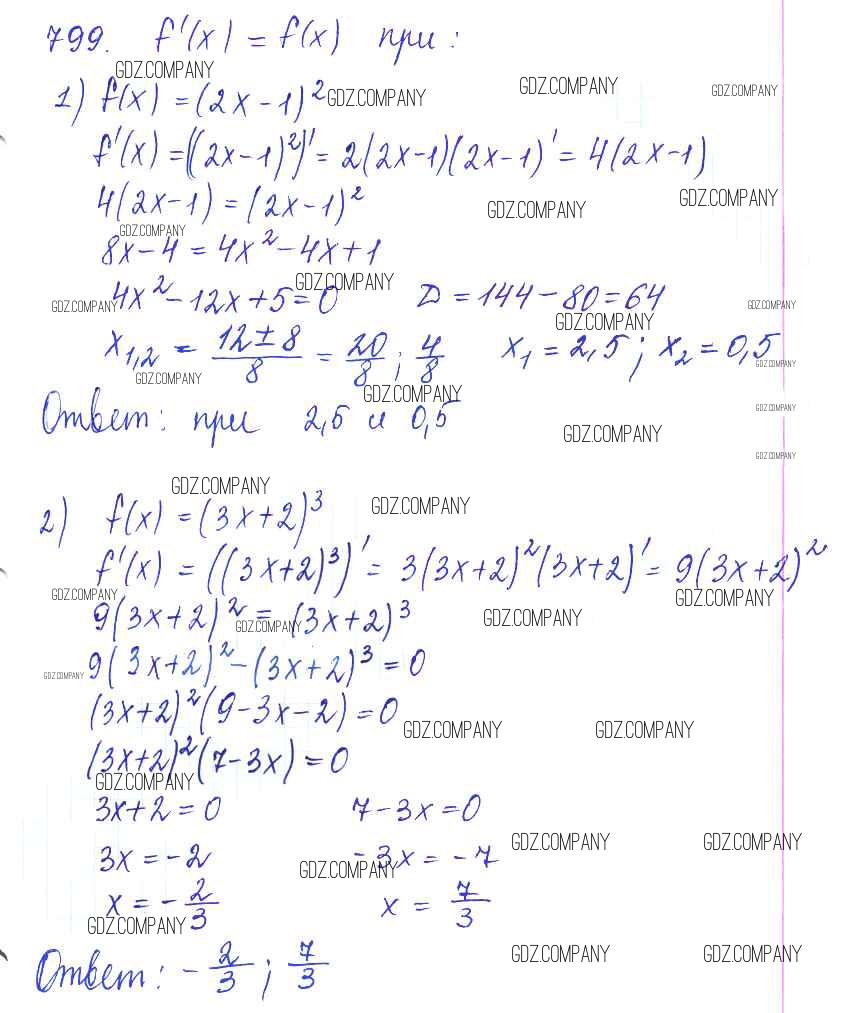 799. f'(x) = f(x) при:
GDZ.COMPANY
1) f(x) = (2x - 1)² GDZ.COMPANY GDZ.COMPANY GDZ.COMPANY
f'(x) = ((2x - 1)²)' = 2(2x-1)(2x-1)' = 4(2x-1)
4(2x-1) = (2x-1)² GDZ.COMPANY GDZ.COMPANY
GDZ.COMPANY
8x - 4 = 4x² - 4x + 1
GDZ.COMPANY
GDZ.COMPANY 4x² - 12x + 5 = 0 D = 144 - 80 = 64 GDZ.COMPANY
GDZ.COMPANY
x₁,₂ = (12 ± 8)/8 = 20/8 ; 4/8 x₁ = 2,5 ; x₂ = 0,5
GDZ.COMPANY GDZ.COMPANY
GDZ.COMPANY
Ответ: при 2,5 и 0,5 GDZ.COMPANY
GDZ.COMPANY
GDZ.COMPANY
GDZ.COMPANY
2) f(x) = (3x+2)³ GDZ.COMPANY
f'(x) = ((3x+2)³)' = 3(3x+2)²(3x+2)' = 9(3x+2)²
GDZ.COMPANY GDZ.COMPANY
9(3x+2)² = (3x+2)³ GDZ.COMPANY
GDZ.COMPANY
GDZ.COMPANY 9(3x+2)² - (3x+2)³ = 0
(3x+2)²(9 - 3x - 2) = 0
GDZ.COMPANY GDZ.COMPANY
(3x+2)²(7 - 3x) = 0
GDZ.COMPANY
3x + 2 = 0 7 - 3x = 0
GDZ.COMPANY GDZ.COMPANY
3x = -2 -3x = -7
GDZ.COMPANY
x = -2/3 x = 7/3
GDZ.COMPANY
GDZ.COMPANY GDZ.COMPANY
Ответ: -2/3 ; 7/3